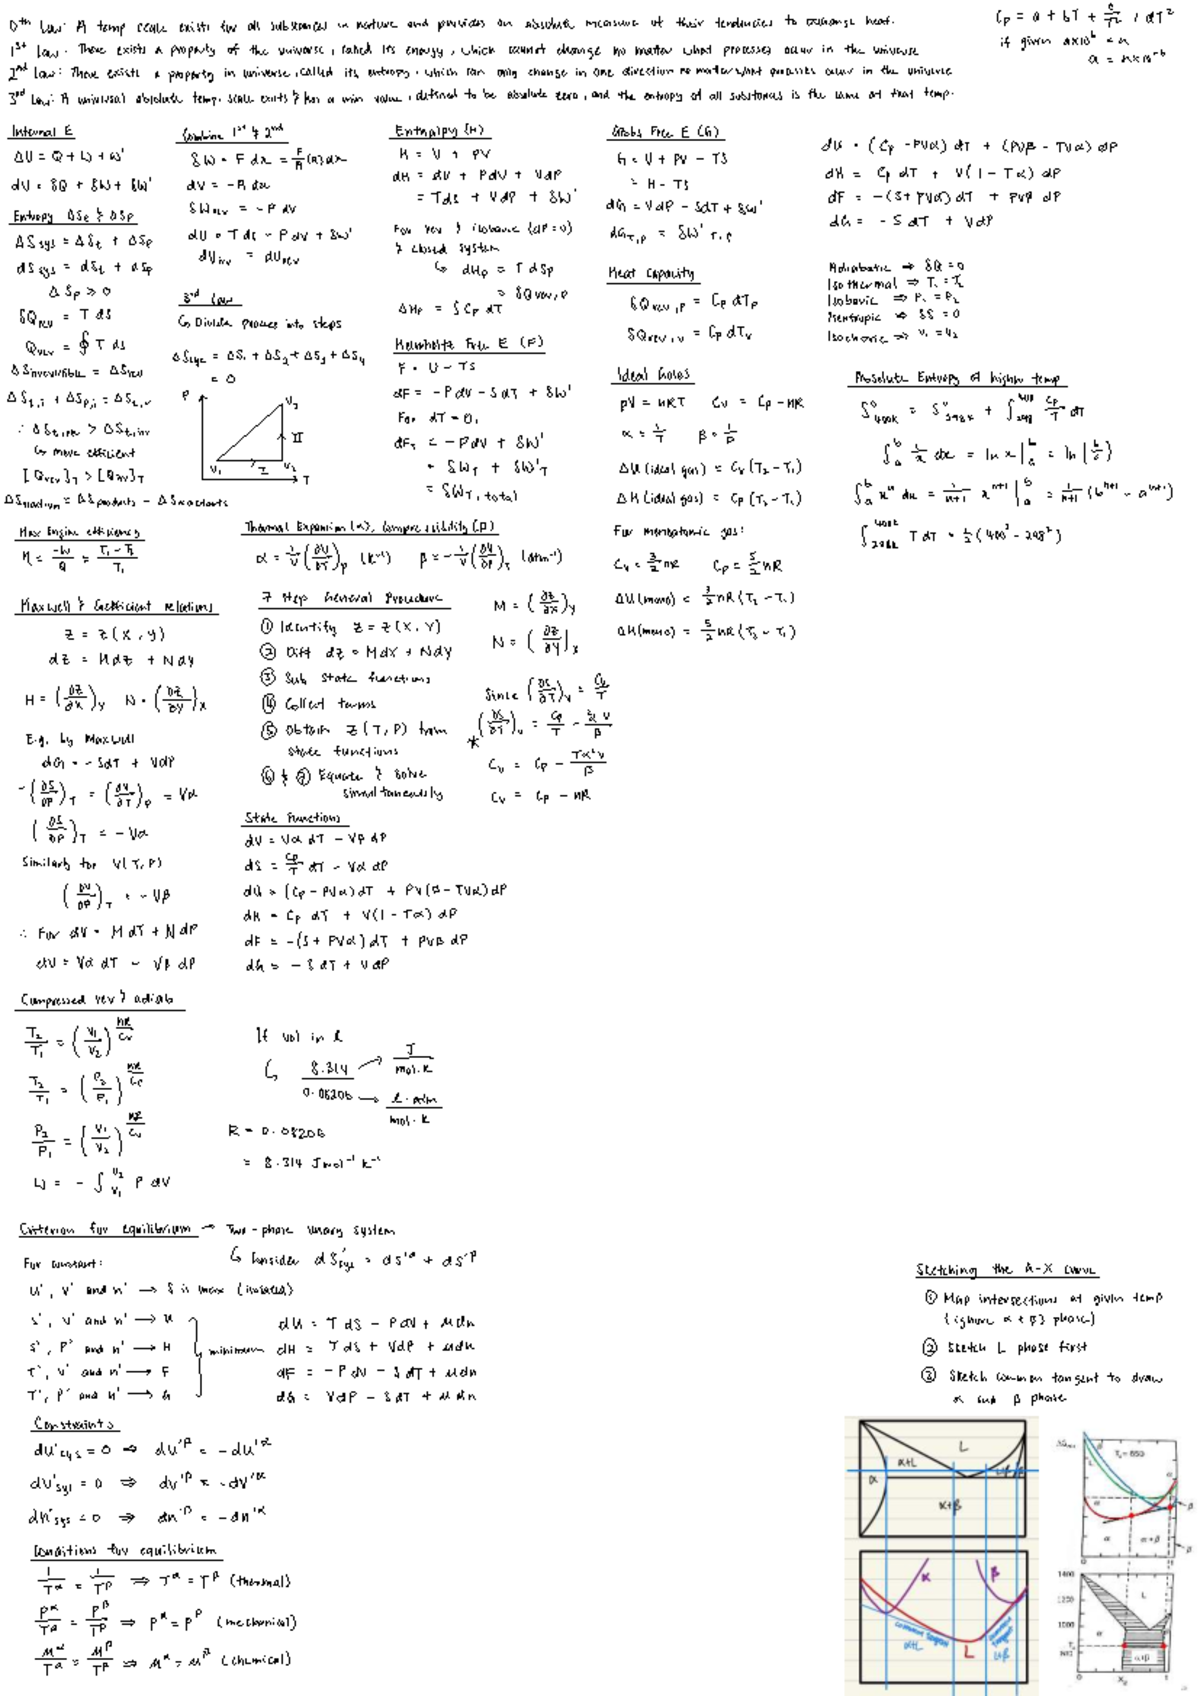 0th law: A temp scale exists for all substances in nature and provides an absolute measure of their tendencies to exchange heat.
1st law: There exists a property of the universe, called its energy, which cannot change no matter what processes occur in the universe
2nd law: There exists a property in universe, called its entropy, which can only change in one direction no matter what processes occur in the universe
3rd law: A universal absolute temp. scale exists & has a min value, defined to be absolute zero, and the entropy of all substances is the same at that temp.
Cp = a + bT + c/T², dT²
if given a×10⁶ = n
a = n×10⁻⁶
Internal E
ΔU = Q + W + W'
dU = δQ + δW + δW'
Entropy ΔSt & ΔSp
ΔSsys = ΔSt + ΔSp
dSsys = dSt + dSp
ΔSp ≥ 0
δQrev = T dS
Qrev = ∮ T dS
ΔSirreversible = ΔSrev
ΔSt,i + ΔSp,i = ΔSt,r
∴ ΔSt,rev > ΔSt,irr
↳ more efficient
[Qrev]T > [Qirr]T
ΔSreaction = ΔSproducts − ΔSreactants
Combine 1st & 2nd
δW = F dx = F/A (A) dx
dV = −A dx
δWrev = −P dV
dU = T dS − P dV + δW'
dUirr = dUrev
3rd law
↳ Divide process into steps
ΔScyc = ΔS₁ + ΔS₂ + ΔS₃ + ΔS₄
= 0
P
V₃
II
V₁
I
V₂
T
Enthalpy (H)
H = U + PV
dH = dU + PdV + VdP
= TdS + VdP + δW'
For rev & isobaric (dP=0)
& closed system
↳ dHp = T dSp
= δQrev,p
ΔHp = ∫ Cp dT
Helmholtz Free E (F)
F = U − TS
dF = −P dV − S dT + δW'
For dT = 0,
dFT = −P dV + δW'
= δWT + δW'T
= δWT, total
Gibbs Free E (G)
G = U + PV − TS
= H − TS
dG = VdP − SdT + δW'
dGT,P = δW'T,P
Heat Capacity
δQrev,p = Cp dTp
δQrev,v = Cp dTv
Ideal Gases
PV = nRT Cv = Cp − nR
α = 1/T β = 1/P
ΔU (ideal gas) = Cv (T₂ − T₁)
ΔH (ideal gas) = Cp (T₂ − T₁)
For monoatomic gas:
Cv = 3/2 nR Cp = 5/2 nR
ΔU (mono) = 3/2 nR (T₂ − T₁)
ΔH (mono) = 5/2 nR (T₂ − T₁)
dU = (Cp − PVα) dT + (PVβ − TVα) dP
dH = Cp dT + V(1 − Tα) dP
dF = −(S + PVα) dT + PVβ dP
dG = − S dT + V dP
Adiabatic ⇒ δQ = 0
Isothermal ⇒ T₁ = T₂
Isobaric ⇒ P₁ = P₂
Isentropic ⇒ δS = 0
Isochoric ⇒ V₁ = V₂
Absolute Entropy of higher temp
S°400K = S°298K + ∫ 298 400 Cp/T dT
∫ₐᵇ 1/x dx = ln x |ₐᵇ = ln |b/a|
∫ₐᵇ xⁿ dx = 1/(n+1) xⁿ⁺¹ |ₐᵇ = 1/(n+1) (bⁿ⁺¹ − aⁿ⁺¹)
∫ 298K 400K T dT = ½ (400² − 298²)
Max Engine efficiency
η = −W/Q = (T₁ − T₂)/T₁
Thermal Expansion (α), Compressibility (β)
α = 1/V (∂V/∂T)P (K⁻¹) β = −1/V (∂V/∂P)T (atm⁻¹)
Maxwell & Coefficient relations
Z = Z (X, Y)
dZ = M dZ + N dy
M = (∂Z/∂X)Y N = (∂Z/∂Y)X
E.g. by Maxwell
dG = − SdT + VdP
−(∂S/∂P)T = (∂V/∂T)P = Vα
(∂S/∂P)T = − Vα
Similarly for V(T, P)
(∂V/∂P)T = − Vβ
∴ For dV = M dT + N dP
dV = Vα dT − Vβ dP
7 step General Procedure
① Identify Z = Z (X, Y)
② Diff dZ = MdX + NdY
③ Sub state functions
④ Collect terms
⑤ Obtain Z (T, P) from
state functions
⑥ & ⑦ Equate & solve
simultaneously
M = (∂Z/∂X)Y
N = (∂Z/∂Y)X
Since (∂S/∂T)V = Cv/T
* (∂S/∂T)V = Cp/T − α²V/β
Cv = Cp − Tα²V/β
Cv = Cp − nR
State Functions
dV = Vα dT − Vβ dP
dS = Cp/T dT − Vα dP
dU = (Cp − PVα) dT + PV(β − TVα) dP
dH = Cp dT + V(1 − Tα) dP
dF = −(S + PVα) dT + PVβ dP
dG = − S dT + V dP
Compressed rev & adiab
T₂/T₁ = (V₁/V₂)^(nR/Cv)
T₂/T₁ = (P₂/P₁)^(nR/Cp)
P₂/P₁ = (V₁/V₂)^(nR/Cv)
W = − ∫ V₁ V₂ P dV
If vol in l
↳ 8.314 → J/mol·K
0.08206 → l·atm/mol·K
R = 0.08206
= 8.314 J mol⁻¹ K⁻¹
Criterion for equilibrium → Two-phase unary system
For constant: ↳ Consider dS'sys = dS'α + dS'β
U', V' and n' → S is max (isolated)
S', V' and n' → U
S', P' and n' → H
T', V' and n' → F
T', P' and n' → G
minimum
dU = T dS − P dV + μ dn
dH = T dS + V dP + μ dn
dF = −P dV − S dT + μ dn
dG = V dP − S dT + μ dn
Constraints
dU'sys = 0 ⇒ dU'β = − dU'α
dV'sys = 0 ⇒ dV'β = − dV'α
dn'sys = 0 ⇒ dn'β = − dn'α
Conditions for equilibrium
1/Tα = 1/Tβ ⇒ Tα = Tβ (thermal)
Pα/Tα = Pβ/Tβ ⇒ Pα = Pβ (mechanical)
μα/Tα = μβ/Tβ ⇒ μα = μβ (chemical)
Sketching the G-X curve
① Map intersections at given temp
(ignore α + β phase)
② Sketch L phase first
③ Sketch common tangent to draw
α and β phase
L
α+L
L+β
β
α
α+β
α
β
common tangent
α+L
L
common tangent
L+β
T₁ = 850
L
α
α
β
α
α+β
β
1400
1200
1000
L
α
α+β
0
X₂
1